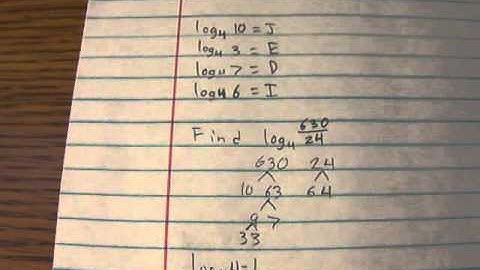 log₄ 10 = J
log₄ 3 = E
log₄ 7 = D
log₄ 6 = I
Find log₄ 630/24
630 24
10 63 6 4
9 7
3 3
log₄ 4 = 1